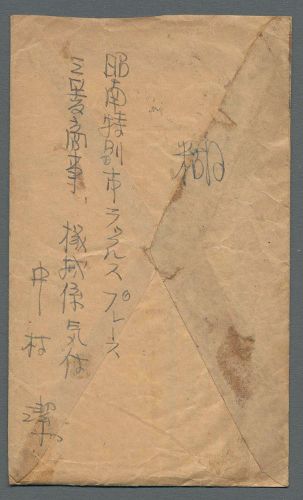 昭南特別市ラッフルスプレース
三菱商事、機械係気付
中村潔